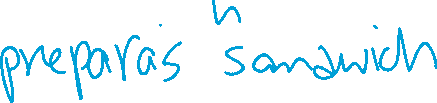 preparas n sandwich